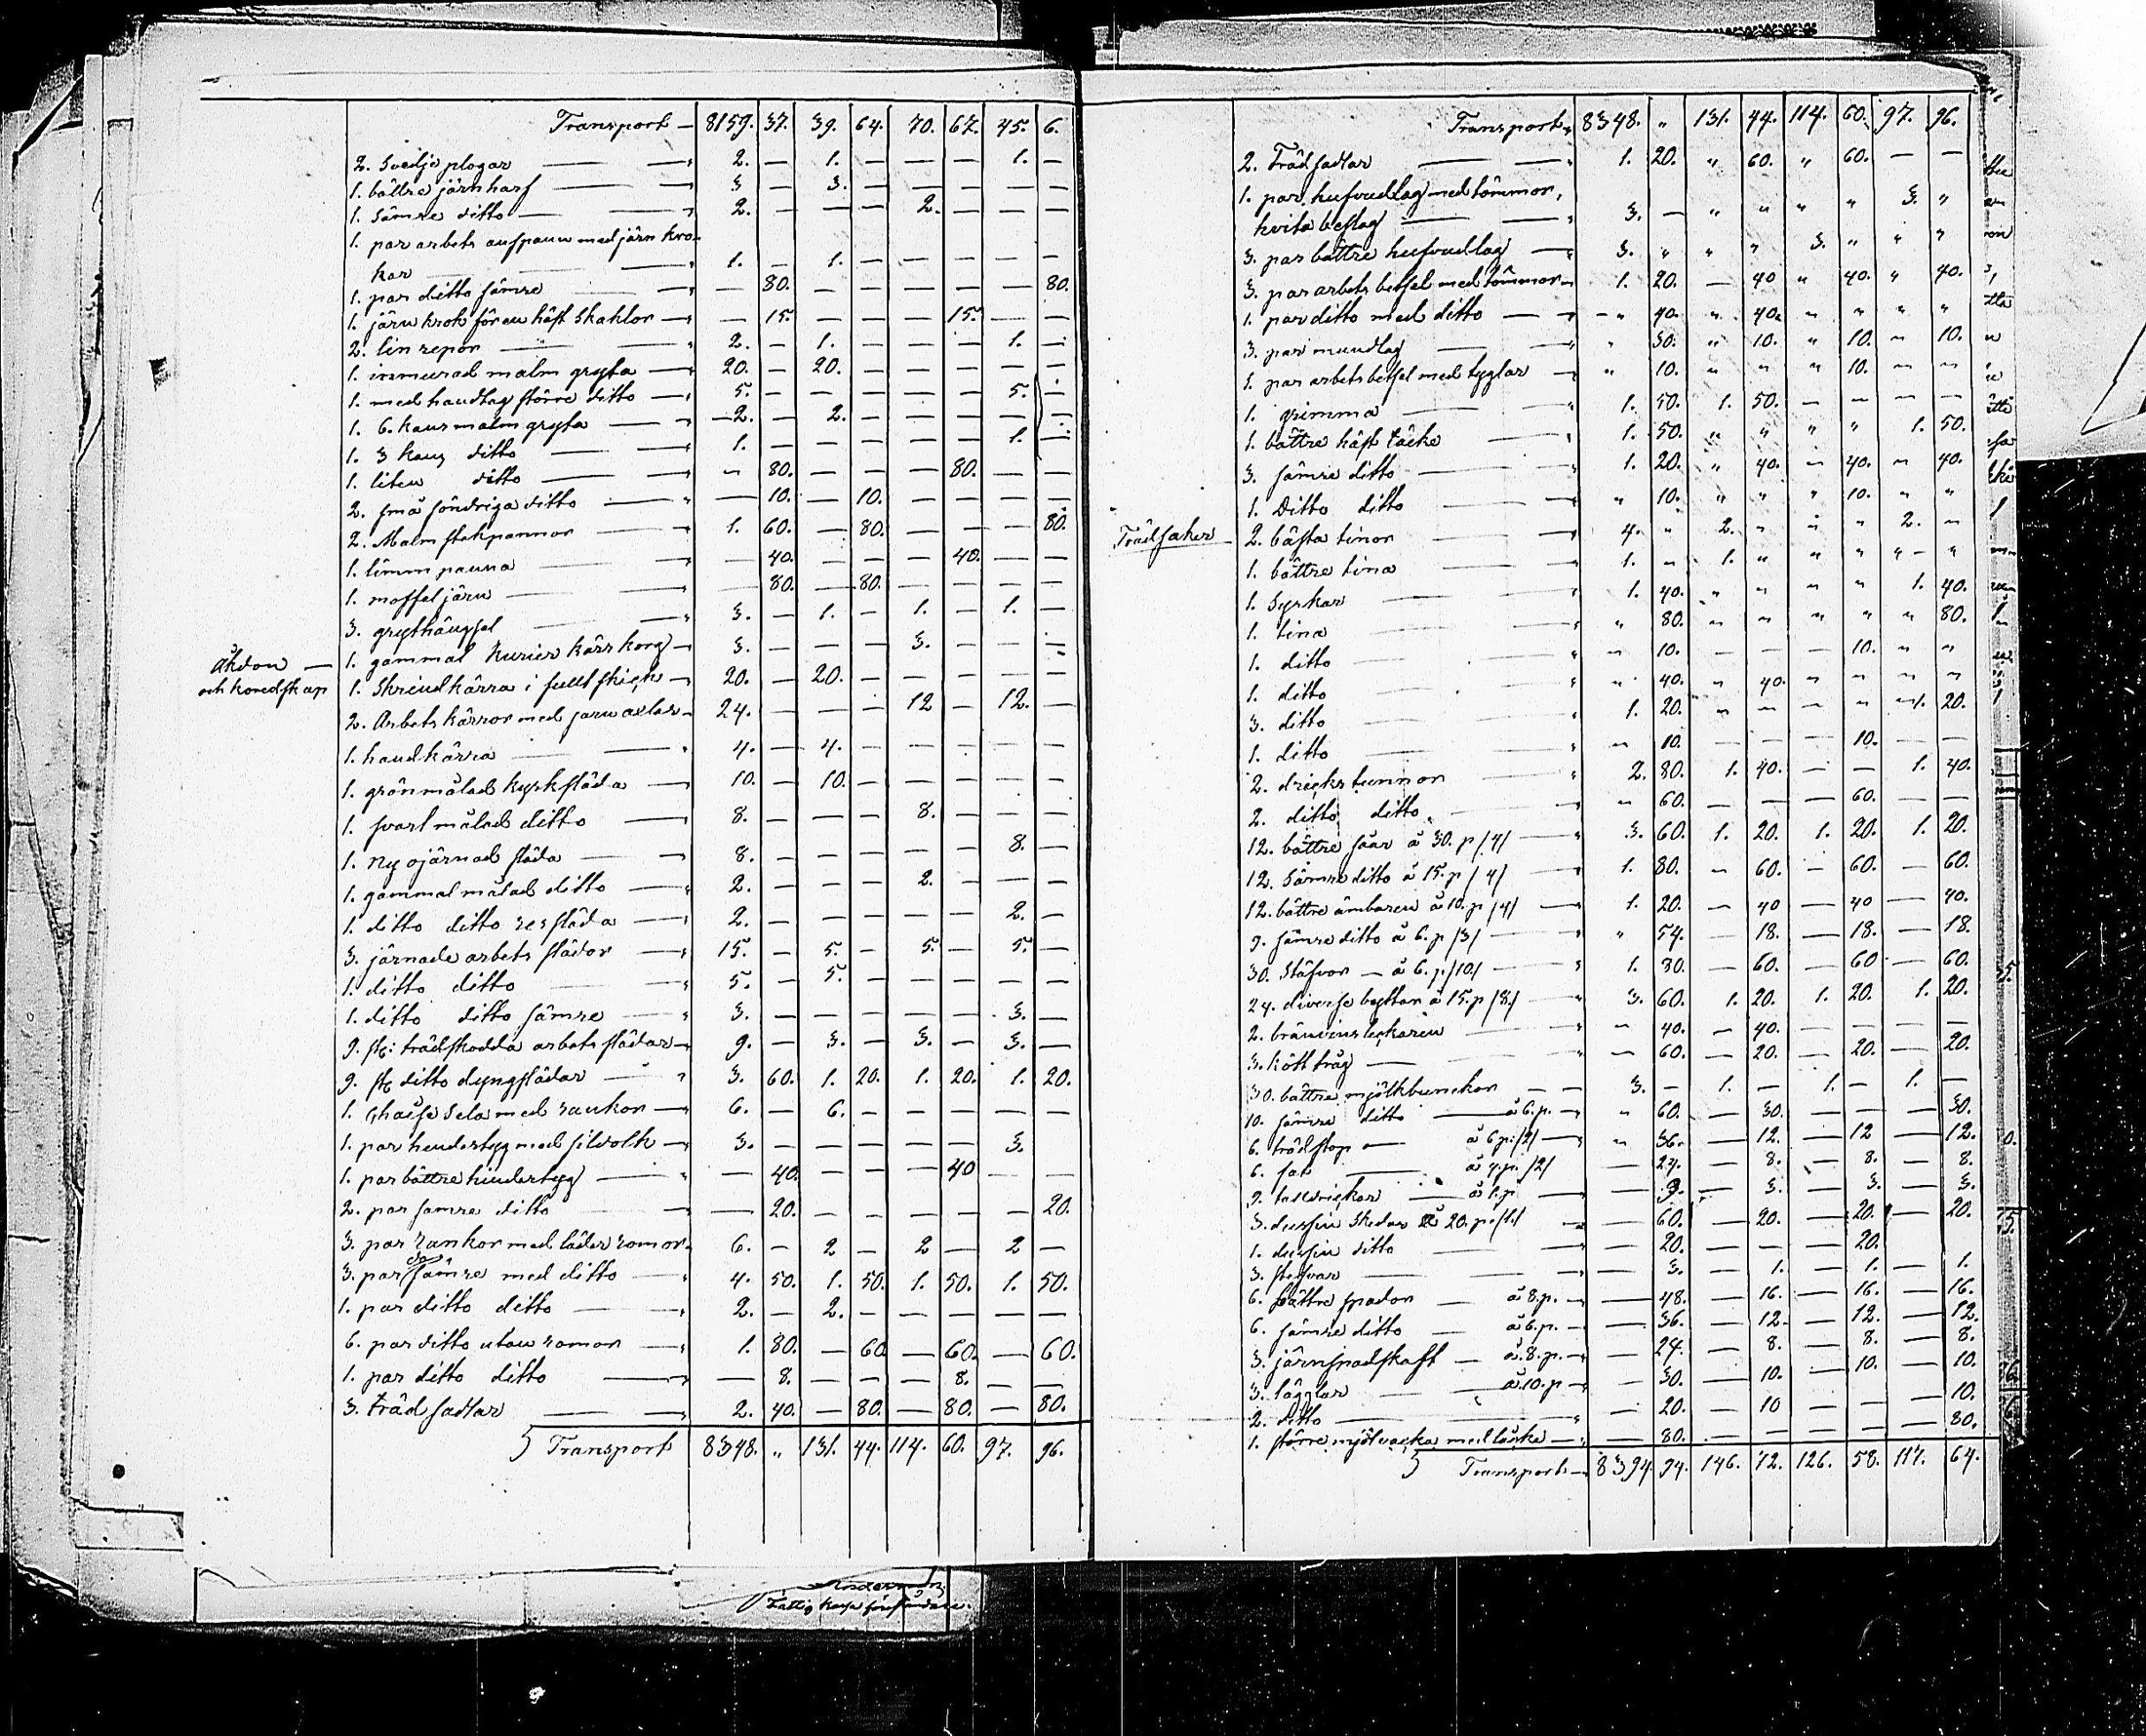 Transport - 8159. 37. 39. 64. 70. 67. 45. 6.
2. Svedje plogar — 2. — 1. — — — 1. —
1. bättre järnharf — 3 — 3. — — — — —
1. sämre ditto — 2. — — — 2. — — —
1. par arbets anspann med järn kro-
kar — 1. — 1. — — — — —
1. par ditto sämre — — 80. — — — — — 80.
1. järn krok för en häst skaklor — — 15. — — — 15. — —
2. lin repor — 2. — 1. — — — 1. —
1. inmurad malm gryta — 20. — 20. — — — — —
1. med handtag större ditto — 5. — — — — — 5. —
1. 6. kans malm gryta — 2. — 2. — — — — —
1. 3 kans ditto — 1. — — — — — 1. —
1. liten ditto — — 80. — — — 80. — —
2. små söndriga ditto — — 10. — 10. — — — —
2. Malm stekpannor — 1. 60. — 80. — — — 80.
1. limm panna — — 40. — — — 40. — —
1. moffel järn — — 80. — 80. — — — —
3. grythängsel — 3. — 1. — 1. — 1. —
Åkdon — 1. gammal kurier kärr korg — 3. — — — 3. — — —
och koredskap 1. Skrindkärra i fullt skick — 20. — 20. — — — — —
2. Arbets kärror med jern axlar — 24. — — — 12 — 12. —
1. handkärra — 4. — 4. — — — — —
1. grönmålad kyrksläda — 10. — 10. — — — — —
1. svart målad ditto — 8. — — — 8. — — —
1. ny ojärnad släda — 8. — — — — — 8. —
1. gammal målad ditto — 2. — — — 2. — — —
1. ditto ditto ressläda — 2. — — — — — 2. —
3. järnade arbets slädor — 15. — 5. — 5. — 5. —
1. ditto ditto — 5. — 5. — — — — —
1. ditto ditto sämre — 3. — — — — — 3. —
9. st: trädskodda arbets slädar — 9. — 3. — 3. — 3. —
9. st ditto dyngslädar — 3. 60. 1. 20. 1. 20. 1. 20.
1. Chaise sela med rankor — 6. — 6. — — — — —
1. par hindertyg med silvolk — 3. — — — — — 3.
1. par bättre hindertyg — — 40. — — — 40 — —
2. par samre ditto — — 20. — — — — — 20.
3. par rankor med läder romor — 6. — 2 — 2 — 2 —
do
3. par sämre med ditto — 4. 50. 1. 50. 1. 50. 1. 50.
1. par ditto ditto — 2. — 2. — — — — —
6. par ditto utan romor — 1. 80. — 60 — 60. — 60.
1. par ditto ditto — — 8. — — — 8. — —
3. träd sadlar — 2. 40. — 80. — 80. — 80.
Transport 8348. " 131. 44. 114. 60. 97. 96.
Transport 8348. " 131. 44. 114. 60. 97. 96.
2. Träd sadlar — 1. 20. " 60. " 60. — —
1. par hufvudlag med tömmor,
hvita beslag — 3. — " " " " 3. "
3. par bättre hufvudlag — 3. " " " 3. " " "
3. par arbets betsel med tömmor — 1. 20. — 40 " 40. " 40.
1. par ditto med ditto — " 40. " 40. " " " "
3. par mundlag — " 30. " 10. " 10. " 10.
1. par arbets betsel med tyglar — " 10. " " " 10. " "
1. grimma — 1. 50. 1. 50. — — — —
1. bättre häst täcke — 1. 50. " " " " 1. 50.
3. sämre ditto — 1. 20. " 40. " 40. " 40.
1. Ditto ditto — " 10. " " " 10. " "
Trädsaker 2. bästa tinor — 4. " 2. " " " 2. "
1. bättre tina — 1. " 1. " " " " "
1. Syrkar — 1. 40. " " " " 1. 40.
1. tina — " 80. " " " " " 80.
1. ditto — " 10. — — — 10. " "
1. ditto — " 40. " 40. " " " "
3. ditto — 1. 20. " — — " 1. 20.
1. ditto — " 10. — — — 10. — —
2. dricks tunnor — 2. 80. 1. 40. — — 1. 40.
2. ditto ditto — " 60. — — — 60. — —
12. bättre såar å 30. p /4/ — 3. 60. 1. 20. 1. 20. 1. 20.
12. Sämre ditto å 15. p /4/ — 1. 80. — 60. — 60. — 60.
12. bättre ämbaren å 10. p /4/ — 1. 20. — 40 — 40 — 40.
9. sämre ditto å 6. p /3/ — " 54. — 18. — 18. — 18.
30. Stäfvor — å 6. p /10/ — 1. 80. — 60. — 60 — 60.
24. diverse byttor å 15. p /8./ — 3. 60. 1. 20. 1. 20. 1. 20.
2. bränvins — 40. — 40. — — — —
3. kött tråg — — 60. — 20. — 20. — 20.
30. bättre mjölkbunckor — 3. — 1. — 1. — 1. —
10. sämre ditto — å 6. p. — " 60. — 30. — — — 30.
6. trädstop — å 6 p. /2/ — " 36. — 12. — 12 — 12.
6. fat — å 4. p. /2/ — 24. — 8. — 8. — 8.
9. talldrickar — å 1. p. — — 9. — 3. — 3. — 3.
3. dussin skedar å 20. p. /1/ — 60. — 20. — 20. — 20.
1. dussin ditto — — 20. — — — 20.
3. — — 3. — 1. — 1. — 1.
6. bättre spador — å 8. p. — 48. — 16. — 16. — 16.
6. sämre ditto — å 6. p. — 36. — 12. — 12. — 12.
3. järnspadskaft — å. 8. p. — 24. — 8. — 8. — 8.
3. läglar — å 10. p — 30. — 10. — 10. — 10.
2. ditto — — 20. — 10 — — — 10.
1. större mjöl med — 80. — — — — — 80.
Transport — 8394. 94. 146. 72. 126. 58. 117. 64.
Fattig kasse föreståndare.